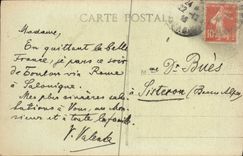 CARTE POSTALE
Madame,
En quittant la belle
France, je pars ce soir
de Toulon via Rome
à Salonique.
Mes plus sincères salu-
tations à Vous, au doc-
sieur et à toute la famille.
V. Valente
Me Dr Buès
à Sisteron (Basses Alpes)
10